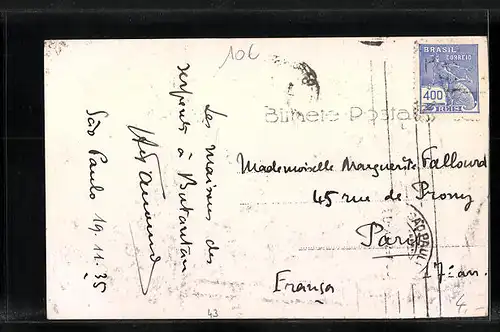 10L
BRASIL
CORREIO
400
RÉIS
Bilhete Postal
Les maisons des
serpents à Butantan
São Paulo 19.11.35
Mademoiselle Marguerite Fallourd
45 rue de Prony
Paris
17e arr.
França
SÃO PAULO
43
4,-